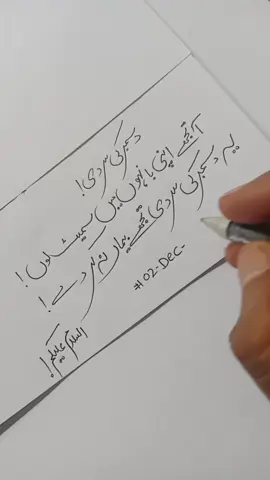 دسمبر کی سردی!
آ تجھے اپنی باہوں میں سمیٹ لوں!
یہ دسمبر کی سردی تجھے بیمار نہ کر دے!
#02-Dec-
السلام علیکم!